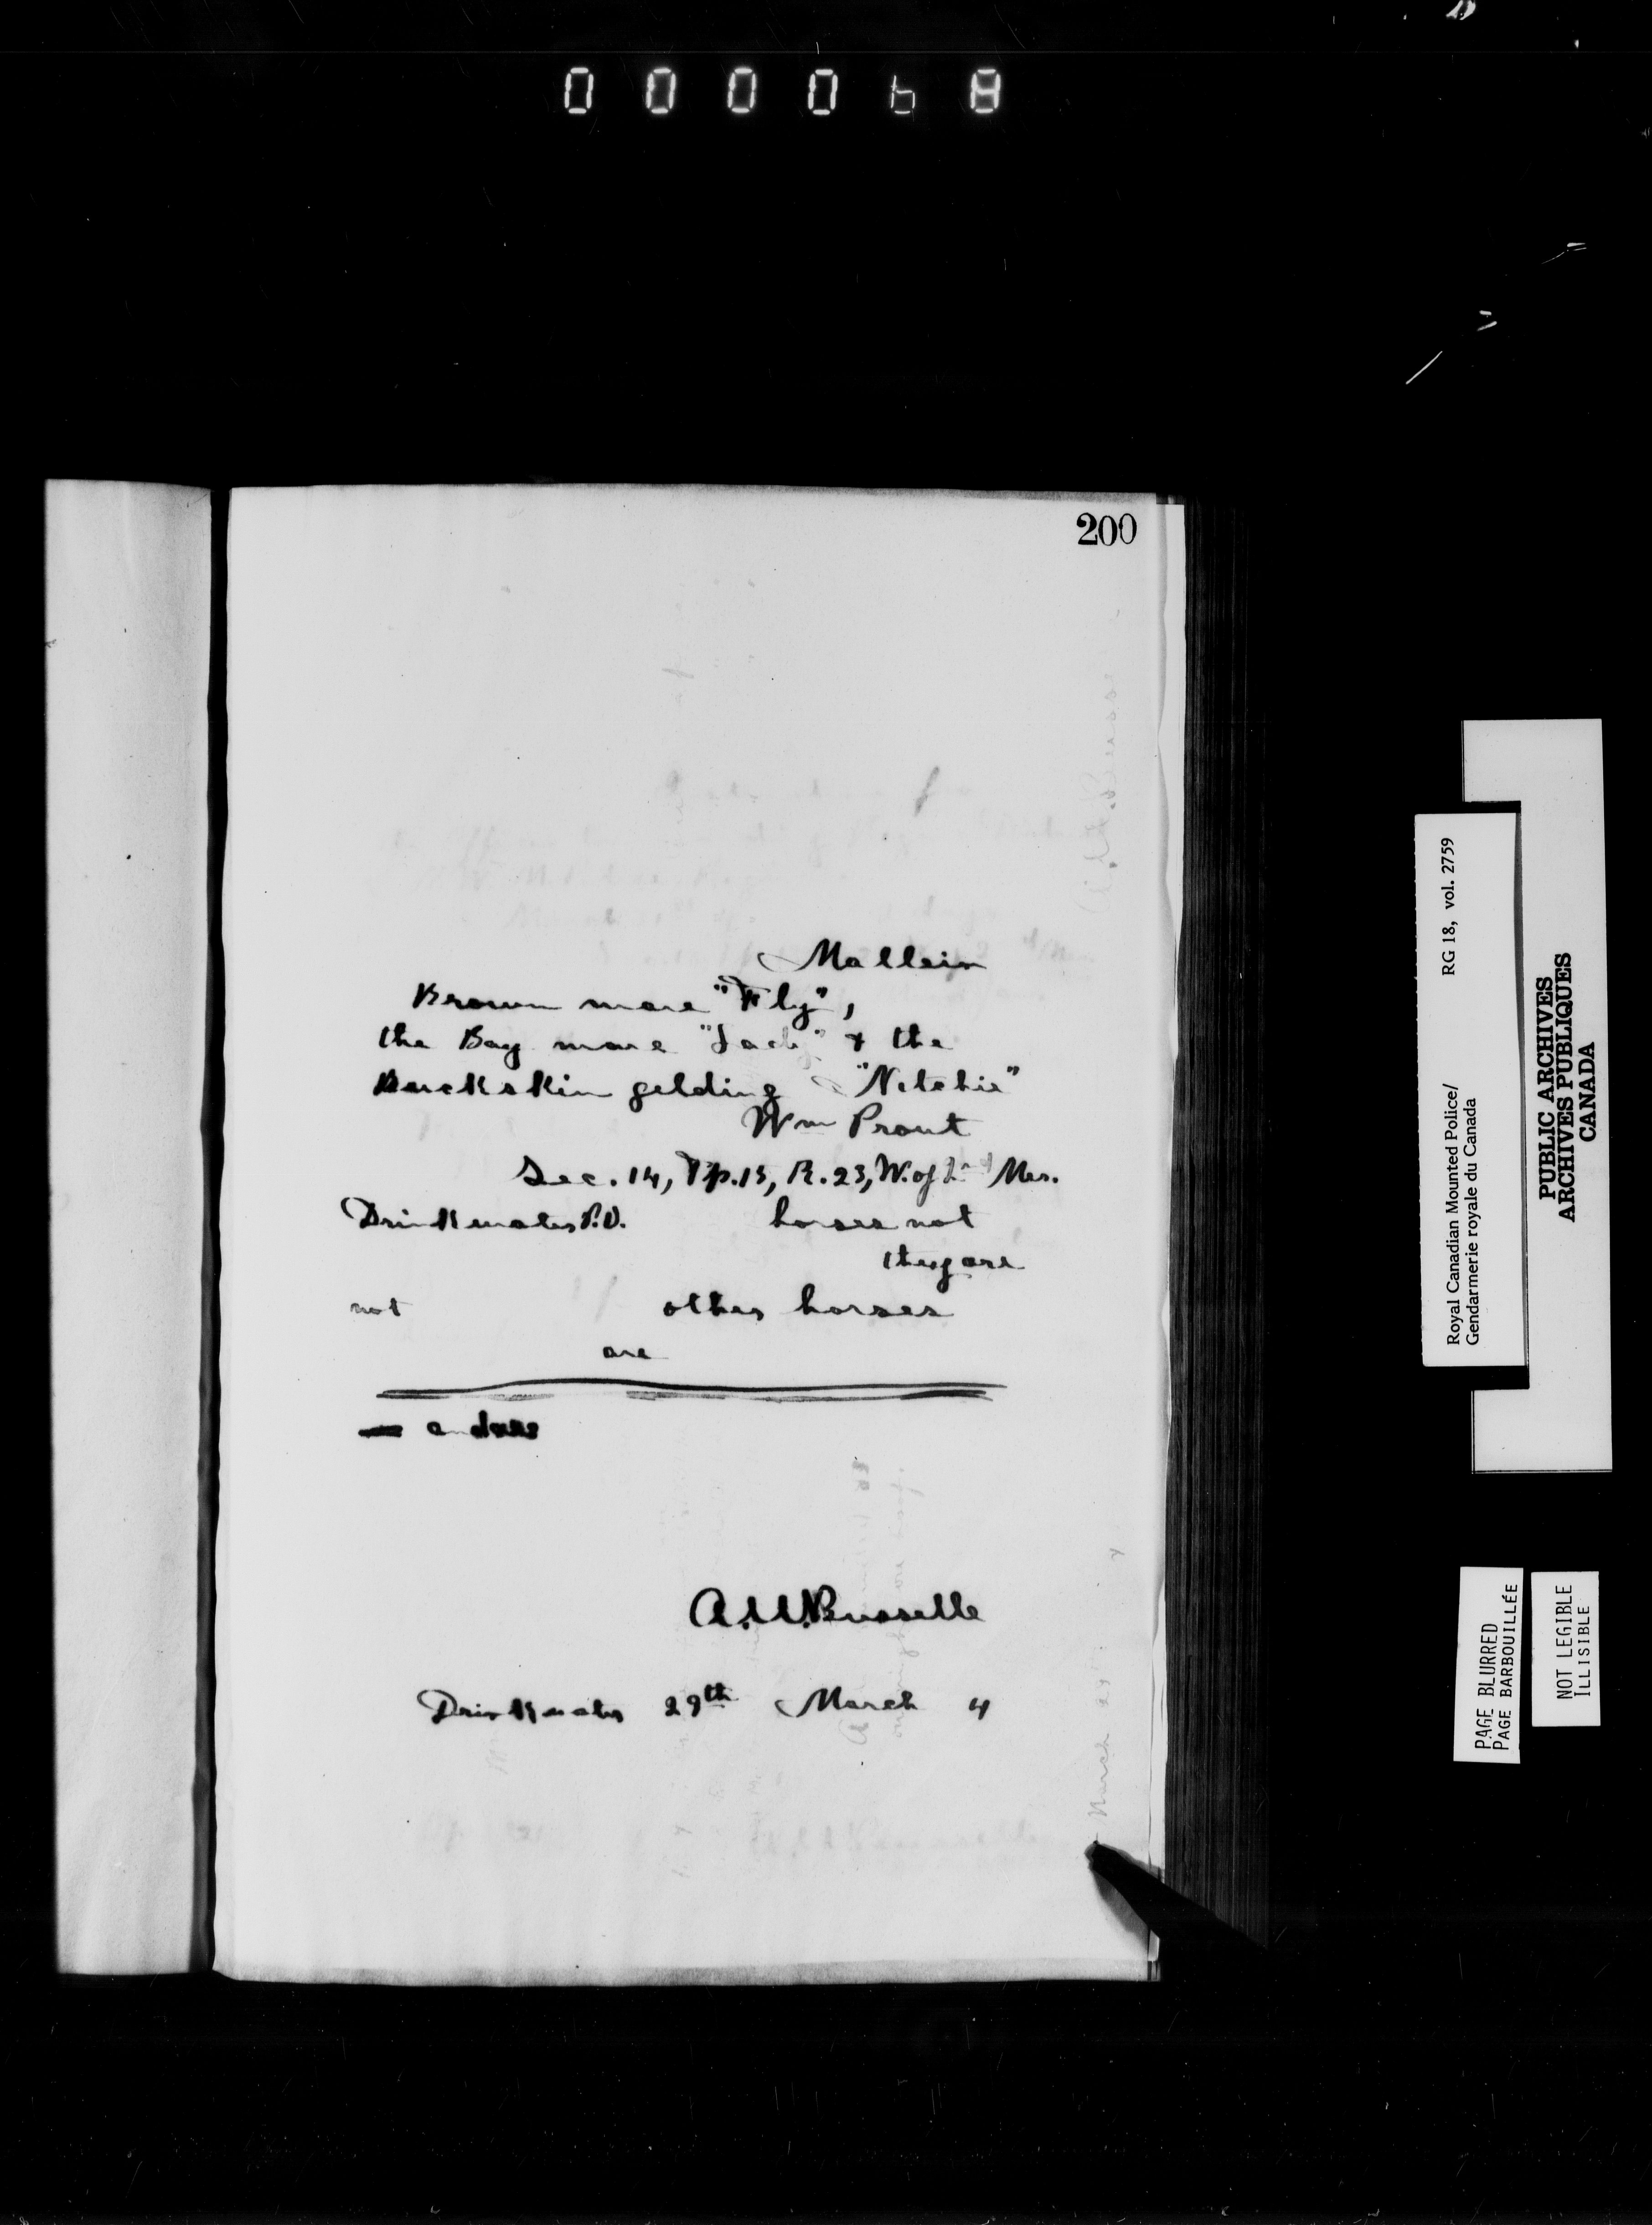 200
Mallein
Brown mare "Fly",
the Bay mare "Lady" & the
Buckskin gelding "Nitchie"
Wm Prout
Sec. 14, Tp. 15, R. 23, W. of 2nd Mer.
Drinkwater P.O. horses not
they are
not other horses
are
Drinkwater 29th March 4
Royal Canadian Mounted Police/ RG 18, vol. 2759
Gendarmerie royale du Canada
PUBLIC ARCHIVES
ARCHIVES PUBLIQUES
CANADA
PAGE BLURRED
PAGE BARBOUILLÉE
NOT LEGIBLE
ILLISIBLE